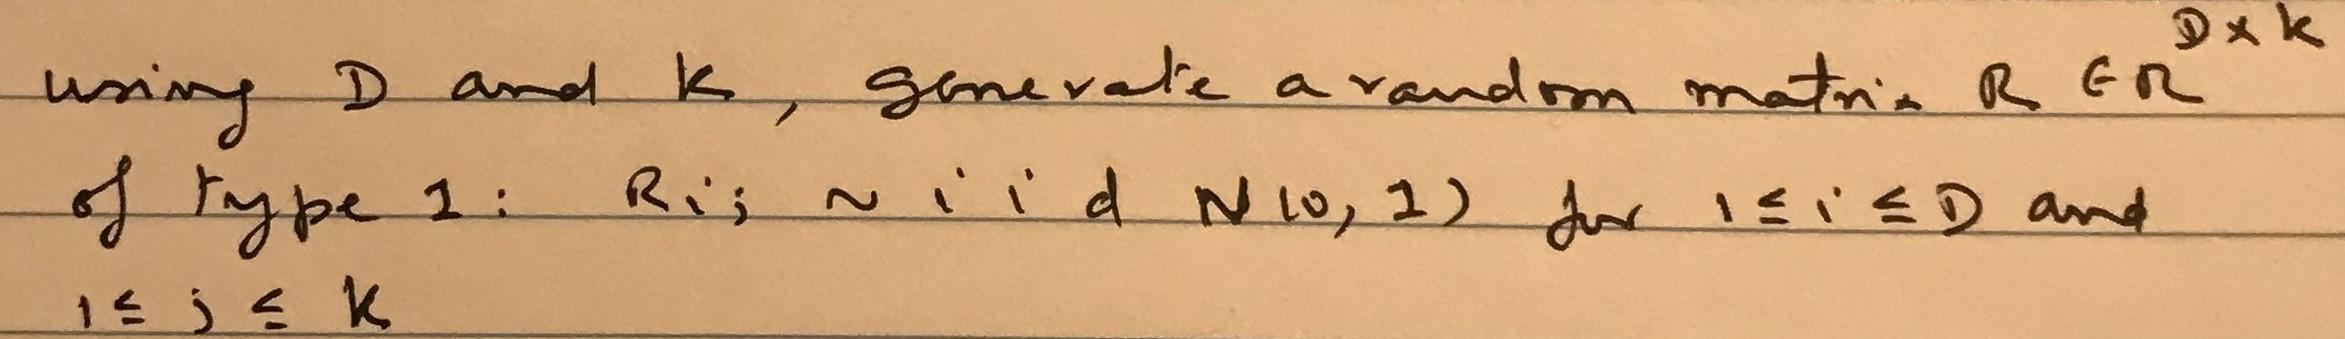 using D and K, generate a random matrix R ∈ R^{D×K}
of type 1: Rij ~ iid N(0,1) for 1≤i≤D and
1≤j≤K